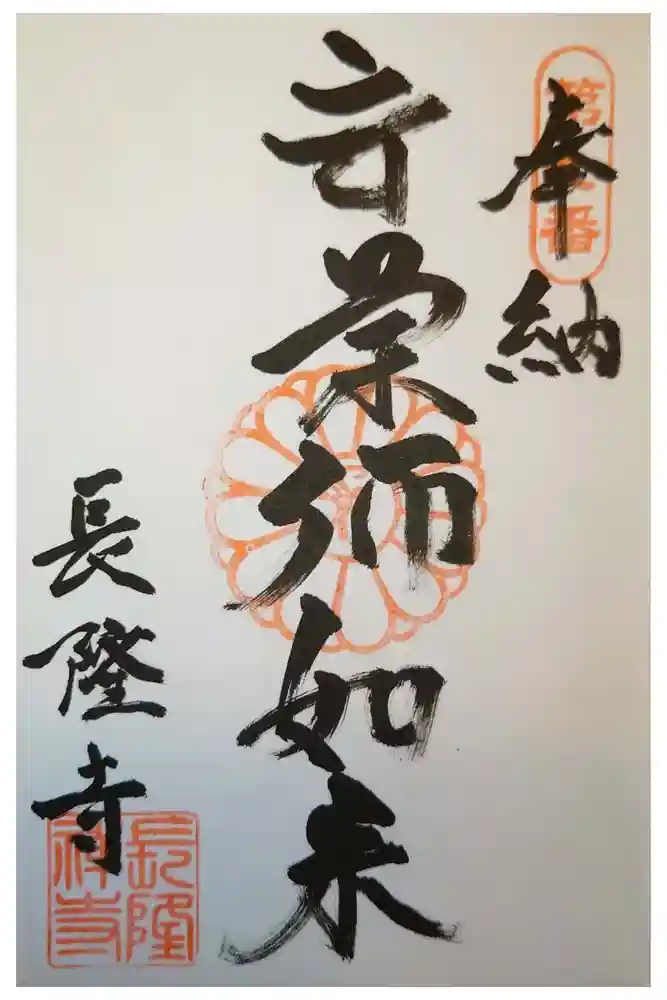 奉納
弥如来
長隆寺
第 番
長隆
禅寺